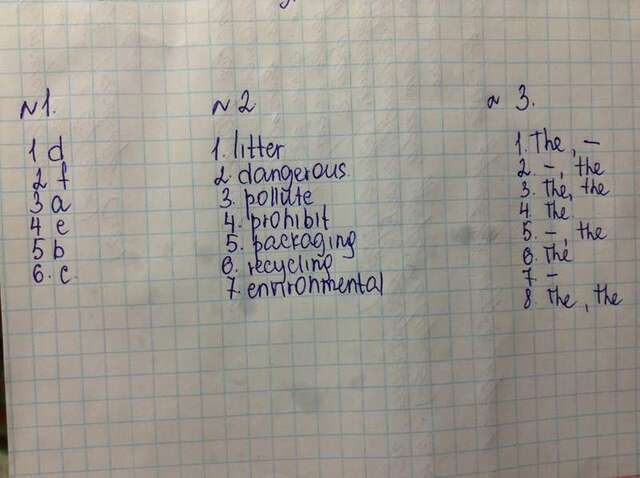 N1.
1 d
2 f
3 a
4 e
5 b
6. c
N2
1. litter
2 dangerous.
3. pollute
4. prohibit
5. packaging
6. recycling
7. environmental
N 3.
1. the, –
2. –, the
3. the, the
4. the
5. –, the
6. the
7. –
8. the, the